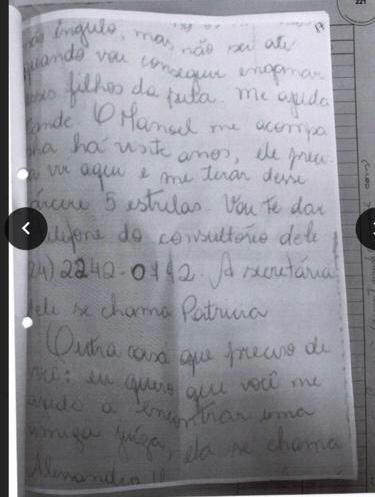 221
17
não ingulo, mas não sei até
quando vou conseguir enganar
esses filhos da puta. Me ajuda
ande. O Manoel me acompa
nha há vinte anos, ele preci
a vir aqui e me tirar desse
árcere 5 estrelas. Vou te dar
telefone do consultório dele
24) 2242-0142. A secretária
dele se chama Patricia
Outra coisa que preciso de
você: eu quero que você me
ajude a encontrar uma
amiga juíza, ela se chama
Alexandra